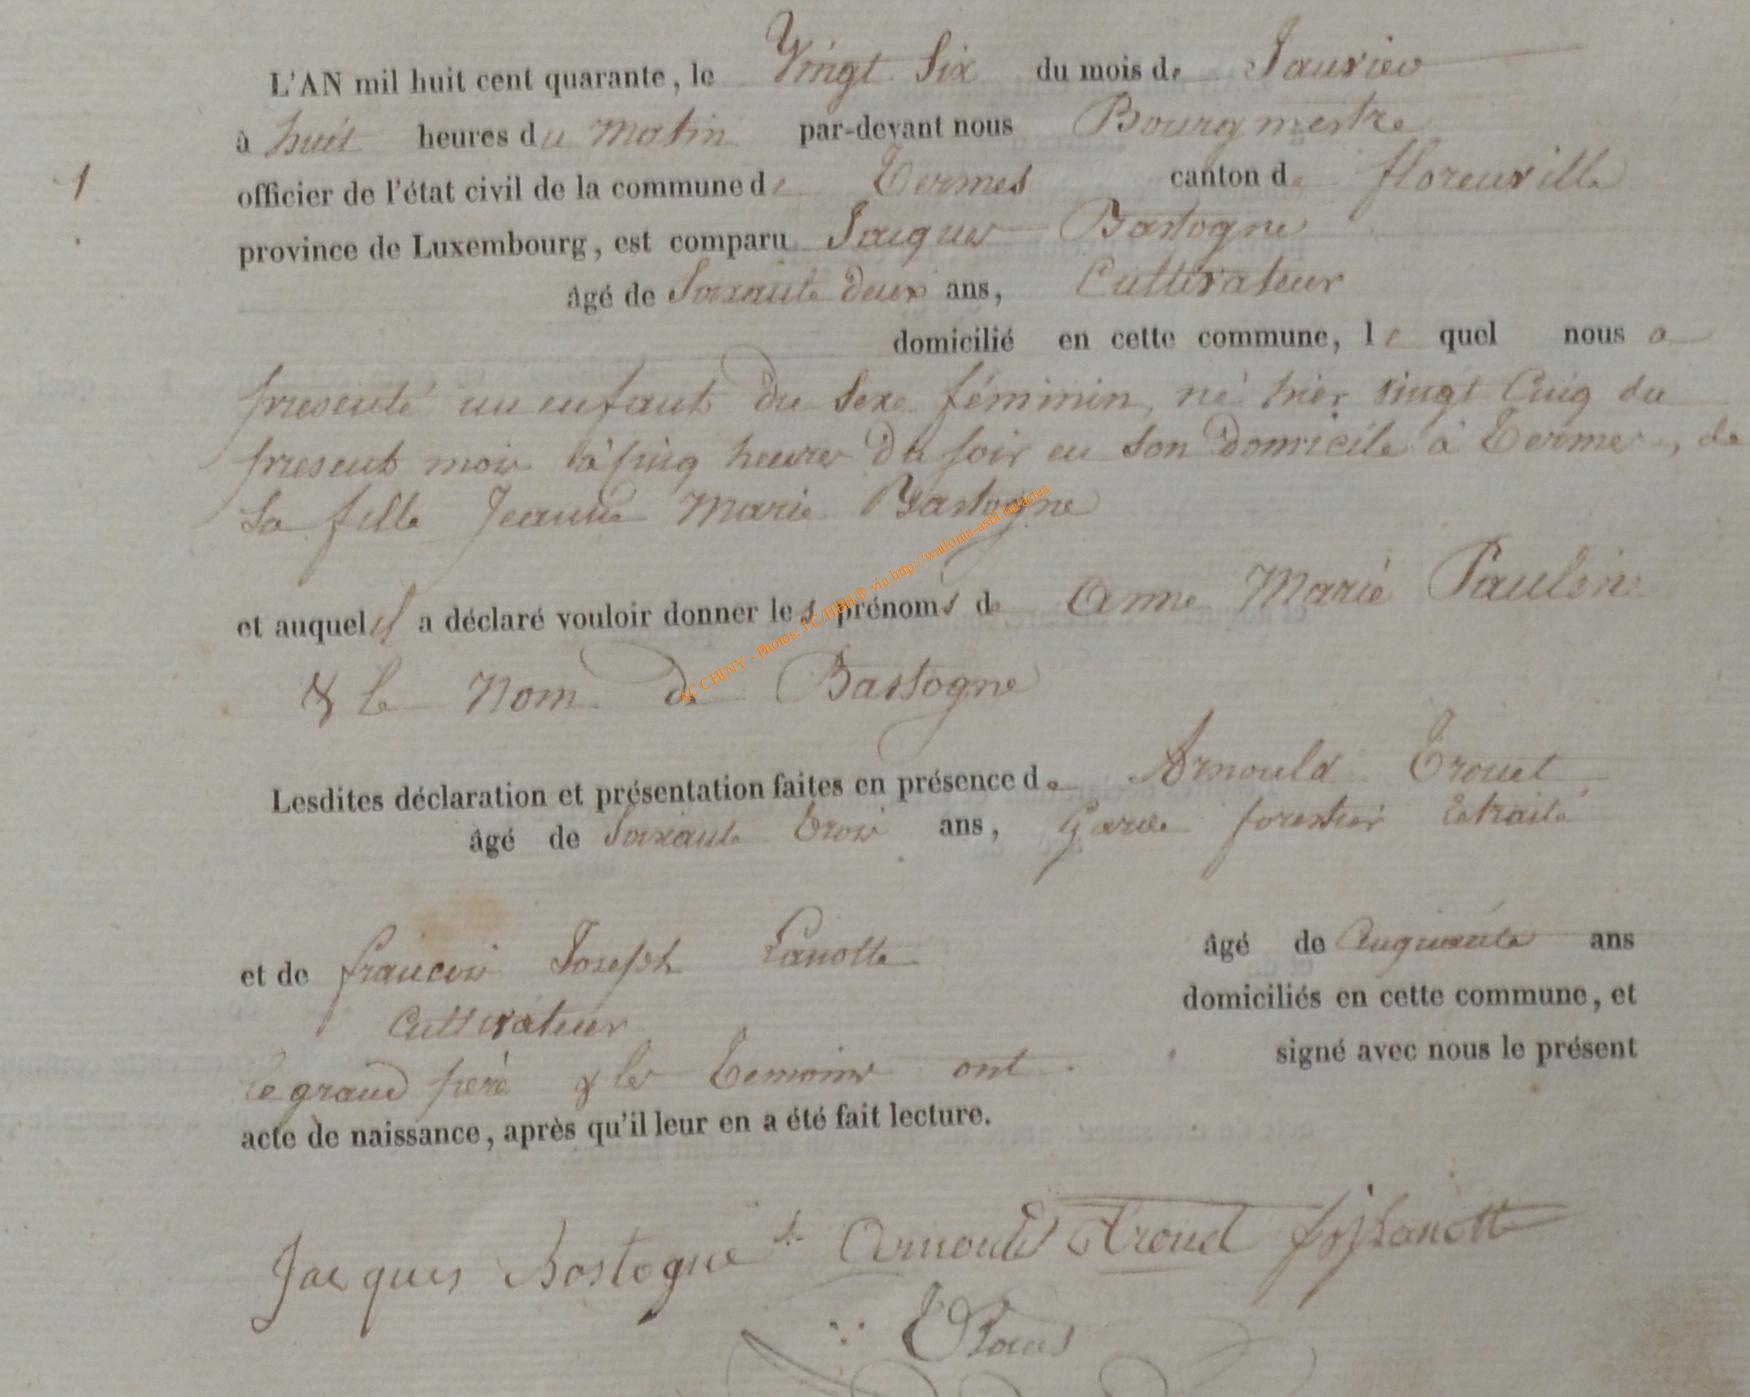 L'AN mil huit cent quarante, le Vingt Six du mois de Janvier
à huit heures du Matin par-devant nous Bourgmestre
1 officier de l'état civil de la commune de Termes canton de florenville
province de Luxembourg, est comparu Jacques Bastogne
âgé de Soixante deux ans, Cultivateur
domicilié en cette commune, le quel nous a
presenté un enfant du Sexe féminin, né hier vingt Cinq du
present mois à Cinq heures Du soir en son Domicile à Termes, de
Sa fille Jeanne Marie Bastogne
et auquel il a déclaré vouloir donner les prénoms de Anne Marie Pauline
& le Nom de Bastogne
Lesdites déclaration et présentation faites en présence de Arnould Trouet
âgé de Soixante Trois ans, Garde forestier retraité
et de françois Joseph Lanotte âgé de Cinquante ans
Cultivateur domiciliés en cette commune, et
le grand père & les Temoins ont signé avec nous le présent
acte de naissance, après qu'il leur en a été fait lecture.
Jacques Bastogne Arnould Trouet fs Js Lanotte
TC CHINY - Photos: TC/HBH.P via http://wallonia-asbl.be/actes